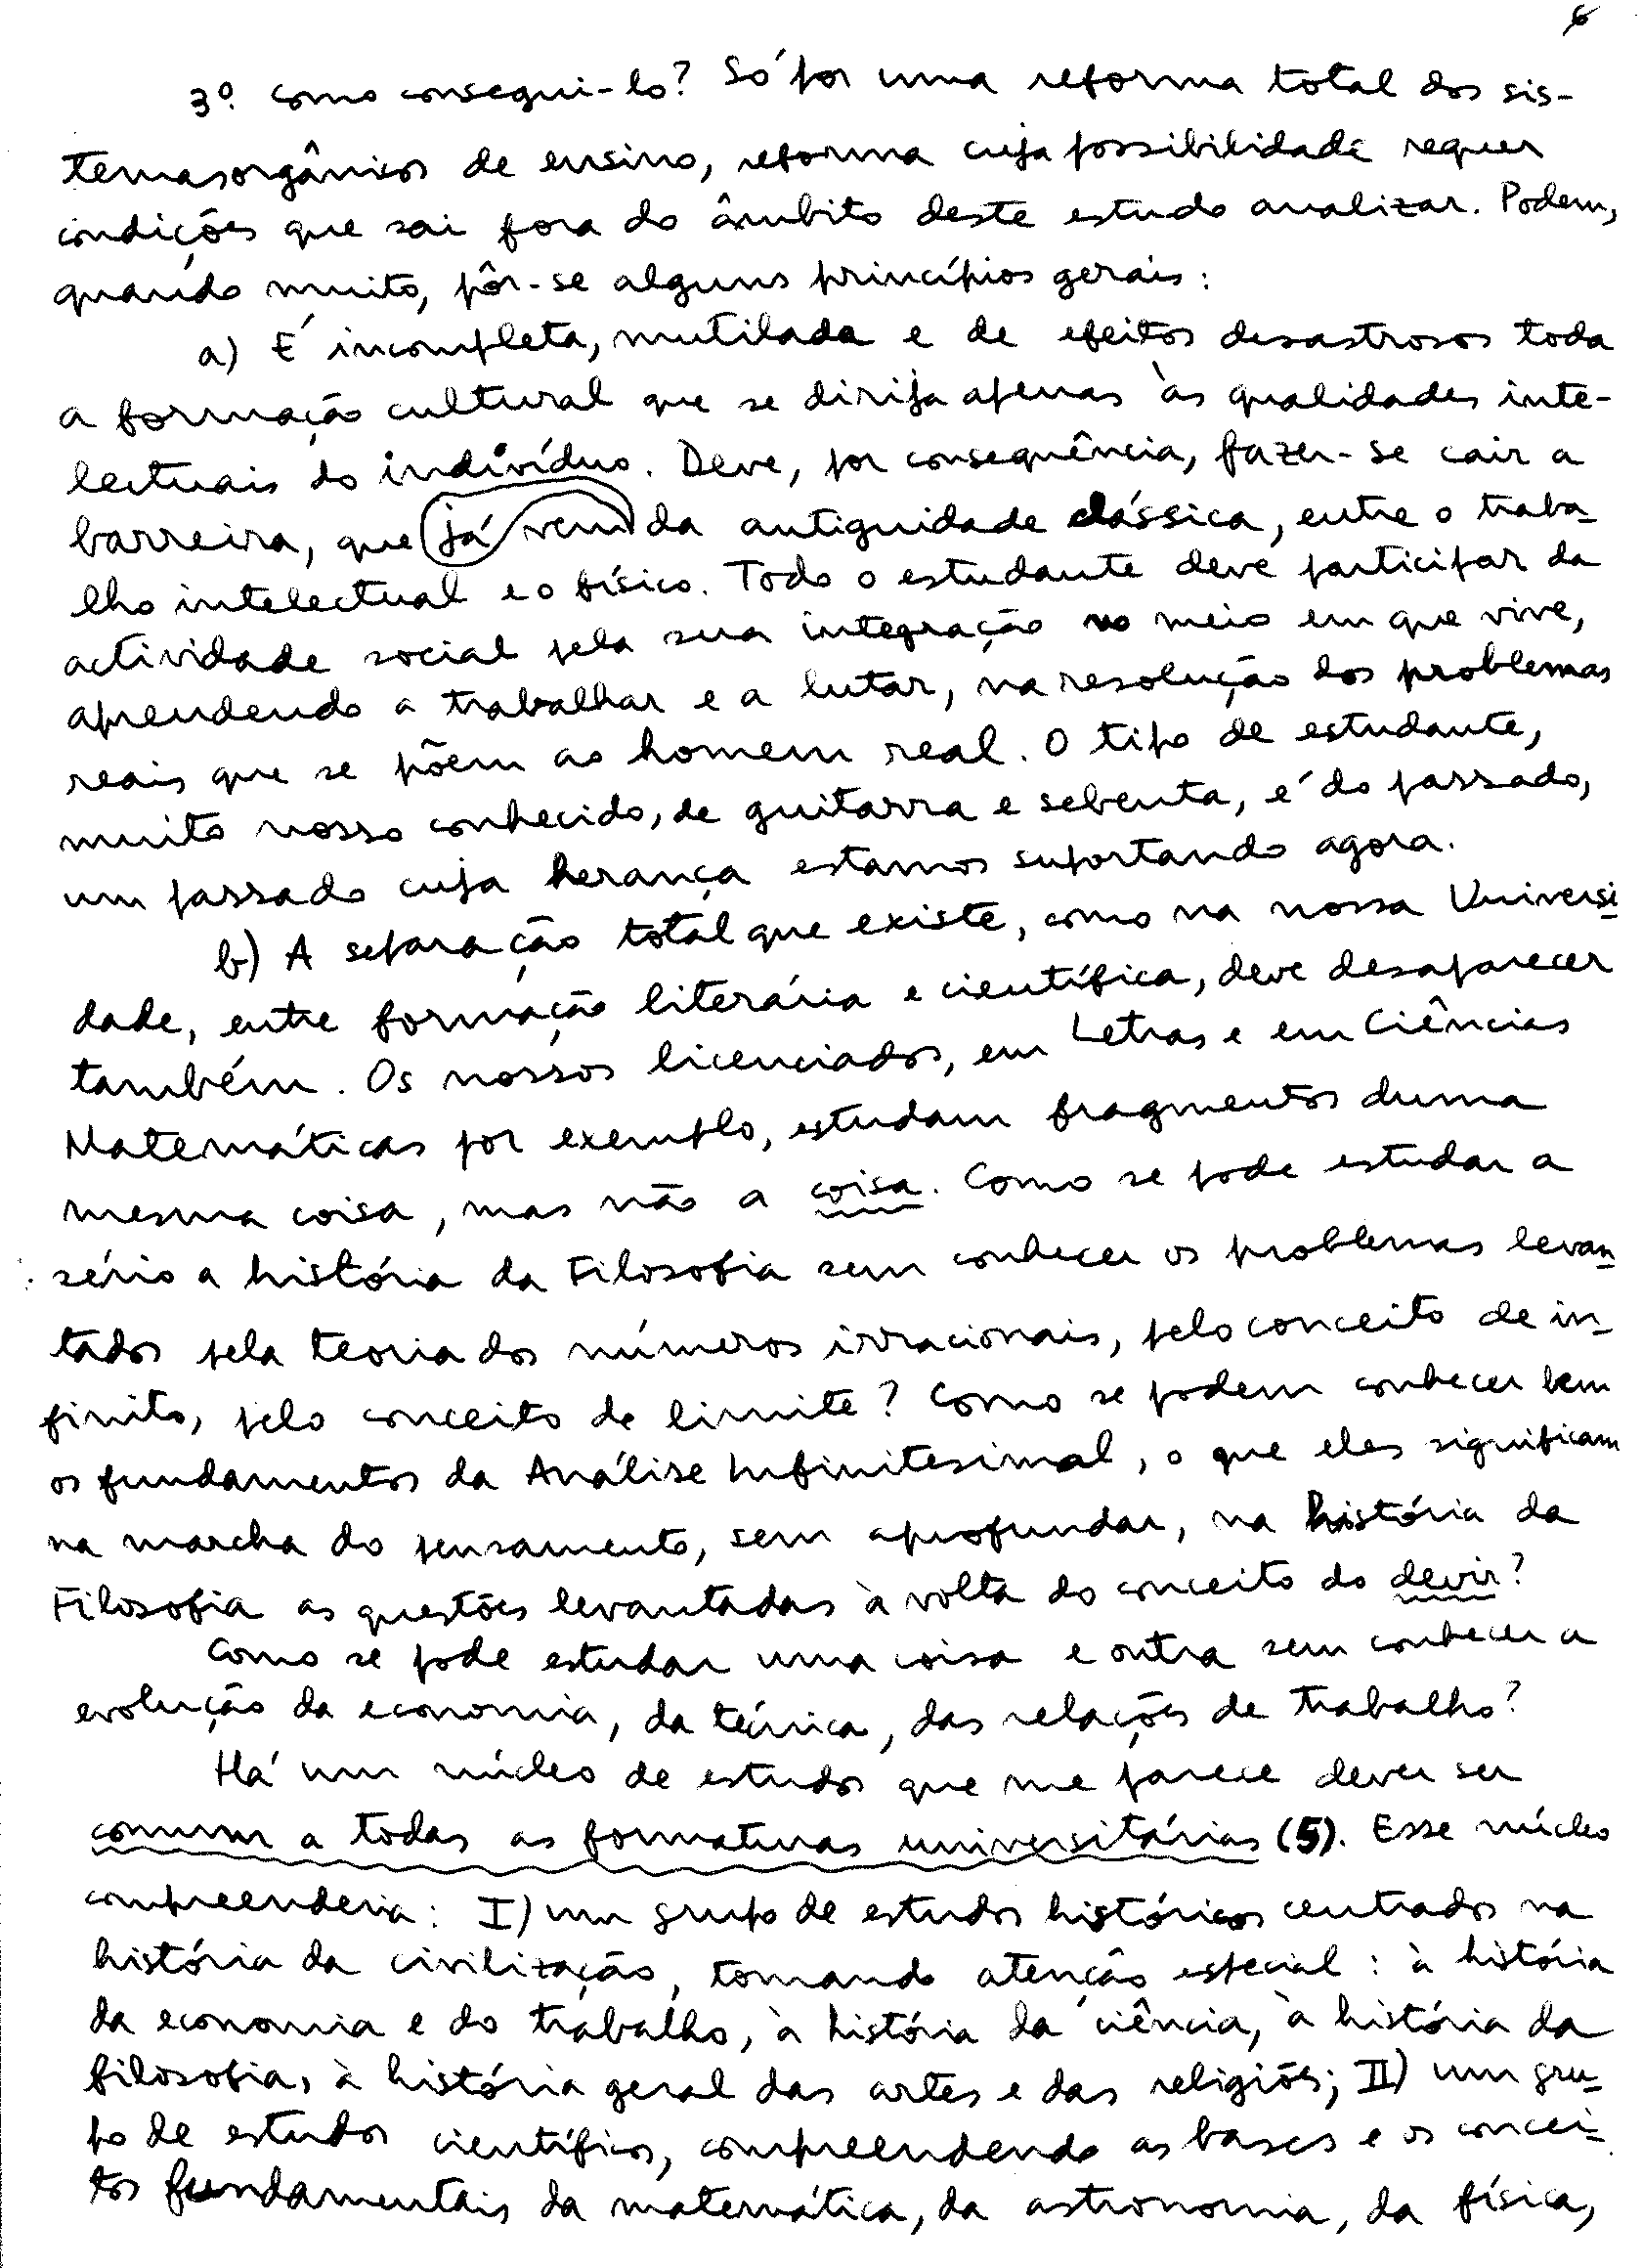 6
3º. como consegui-lo? Só por uma reforma total dos sis-
temas orgânicos de ensino, reforma cuja possibilidade requer
condições que sai fora do âmbito deste estudo analizar. Podem,
quando muito, pôr-se alguns princípios gerais:
a) É incompleta, mutilada e de efeitos desastrosos toda
a formação cultural que se dirija apenas às qualidades inte-
lectuais do indivíduo. Deve, por consequência, fazer-se cair a
barreira, que já vem da antiguidade clássica, entre o traba-
lho intelectual e o físico. Todo o estudante deve participar da
actividade social pela sua integração no meio em que vive,
aprendendo a trabalhar e a lutar, na resolução dos problemas
reais que se põem ao homem real. O tipo de estudante,
muito nosso conhecido, de guitarra e sebenta, é do passado,
um passado cuja herança estamos suportando agora.
b) A separação total que existe, como na nossa Universi-
dade, entre formação literária e científica, deve desaparecer
também. Os nossos licenciados, em Letras e em Ciências
Matemáticas por exemplo, estudam fragmentos duma
mesma coisa, mas não a coisa. Como se pode estudar a
sério a história da Filosofia sem conhecer os problemas levan-
tados pela teoria dos números irracionais, pelo conceito de in-
finito, pelo conceito de limite? Como se podem conhecer bem
os fundamentos da Análise Infinitesimal, o que eles significam
na marcha do pensamento, sem aprofundar, na história da
Filosofia as questões levantadas à volta do conceito do devir?
Como se pode estudar uma coisa e outra sem conhecer a
evolução da economia, da técnica, das relações de trabalho?
Há um núcleo de estudos que me parece dever ser
comum a todas as formaturas universitárias (5). Esse núcleo
compreenderia: I) um grupo de estudos históricos centrados na
história da civilização, tomando atenção especial: à história
da economia e do trabalho, à história da ciência, à história da
filosofia, à história geral das artes e das religiões; II) um gru-
po de estudos científicos, compreendendo as bases e os concei-
tos fundamentais da matemática, da astronomia, da física,